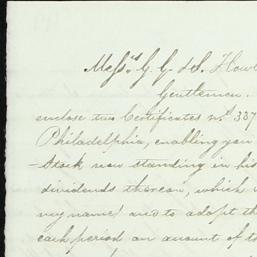 Mess.rs G. G. & S. How
Gentlemen.
enclose two Certificates n.d 337
Philadelphia, enabling you
Stock now standing in his
dividends thereon, which
my name) and to adopt th
each period an amount of